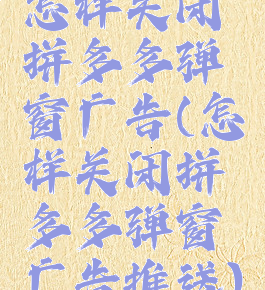 怎样关闭
拼多多弹
窗广告(怎
样关闭拼
多多弹窗
广告推送)